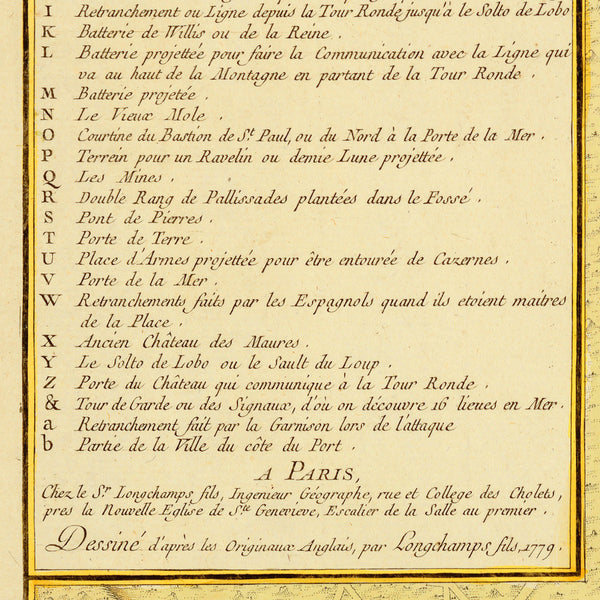 I Retranchement ou Ligne depuis la Tour Ronde jusqu'à le Solto de Lobo
K Batterie de Willis ou de la Reine.
L Batterie projettée pour faire la Communication avec la Ligne qui
va au haut de la Montagne en partant de la Tour Ronde.
M Batterie projetée.
N Le Vieux Mole.
O Courtine du Bastion de St. Paul, ou du Nord à la Porte de la Mer.
P Terrein pour un Ravelin ou demie Lune projettée.
Q Les Mines.
R Double Rang de Pallissades plantées dans le Fossé.
S Pont de Pierres.
T Porte de Terre.
U Place d'Armes projettée pour être entourée de Cazernes.
V Porte de la Mer.
W Retranchements faits par les Espagnols quand ils etoient maitres
de la Place.
X Ancien Château des Maures.
Y Le Solto de Lobo ou le Sault du Loup.
Z Porte du Château qui communique à la Tour Ronde.
& Tour de Garde ou des Signaux, d'où on découvre 16 lieues en Mer.
a Retranchement fait par la Garnison lors de l'attaque
b Partie de la Ville du côte du Port.
A PARIS,
Chez le Sr. Longchamps fils, Ingenieur Géographe, rue et College des Cholets,
pres la Nouvelle Eglise de Ste. Genevieve, Escalier de la Salle au premier.
Dessiné d'après les Originaux Anglais, par Longchamps fils, 1779.